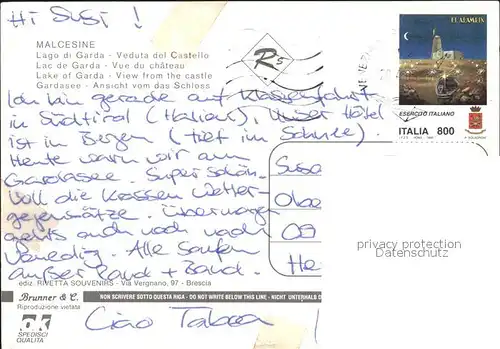 Hi Susi !
MALCESINE
Lago di Garda - Veduta del Castello
Lac de Garda - Vue du château
Lake of Garda - View from the castle
Gardasee - Ansicht vom das Schloss
Rs
EL ALAMEIN
ESERCITO ITALIANO
ITALIA 800
Ich bin gerade auf Klassenfahrt
in Südtirol (Italien), unser Hotel
ist in Bergen (tief im Schnee)
Heute warn wir am
Gardasee. Super schön.
Voll die krassen Wetter-
gegensätze. Übermorgen
gehts auch noch nach
Venedig. Alle saufen
außer Rand + Band.
Suse
Obe
09
He
privacy protection
Datenschutz
ediz. RIVETTA SOUVENIRS - Via Vergnano, 97 - Brescia
Brunner & C.
Riproduzione vietata
NON SCRIVERE SOTTO QUESTA RIGA - DO NOT WRITE BELOW THIS LINE - NICHT UNTERHALB D
SPEDISCI
QUALITÀ
Ciao